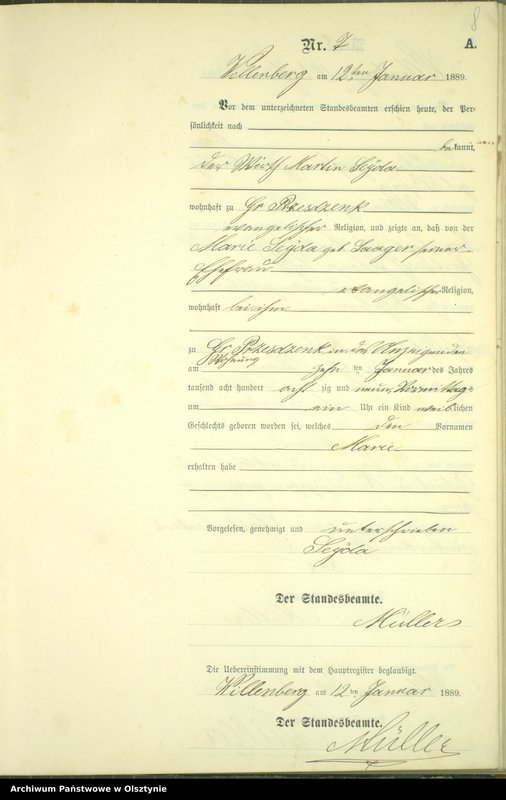 8
Nr. 7 A.
Willenberg am 12ten Januar 1889.
Vor dem unterzeichneten Standesbeamten erschien heute, der Per-
sönlichkeit nach
bekannt,
der Wirth Martin Seyda
wohnhaft zu Gr. Przesdzenk
evangelischer Religion, und zeigte an, daß von der
Marie Seyda geb. Saager seiner
Ehefrau
evangelischer Religion,
wohnhaft bei ihm
zu Gr. Przesdzenk in des Anzeigenden
Wohnung
am zehn ten Januar des Jahres
tausend acht hundert acht zig und neun, Vormittags
um ein Uhr ein Kind weiblichen
Geschlechts geboren worden sei, welches den Vornamen
Marie
erhalten habe
Vorgelesen, genehmigt und unterschrieben
Seyda
Der Standesbeamte.
Müller
Die Uebereinstimmung mit dem Hauptregister beglaubigt.
Willenberg am 12ten Januar 1889.
Der Standesbeamte.
Müller
Archiwum Państwowe w Olsztynie